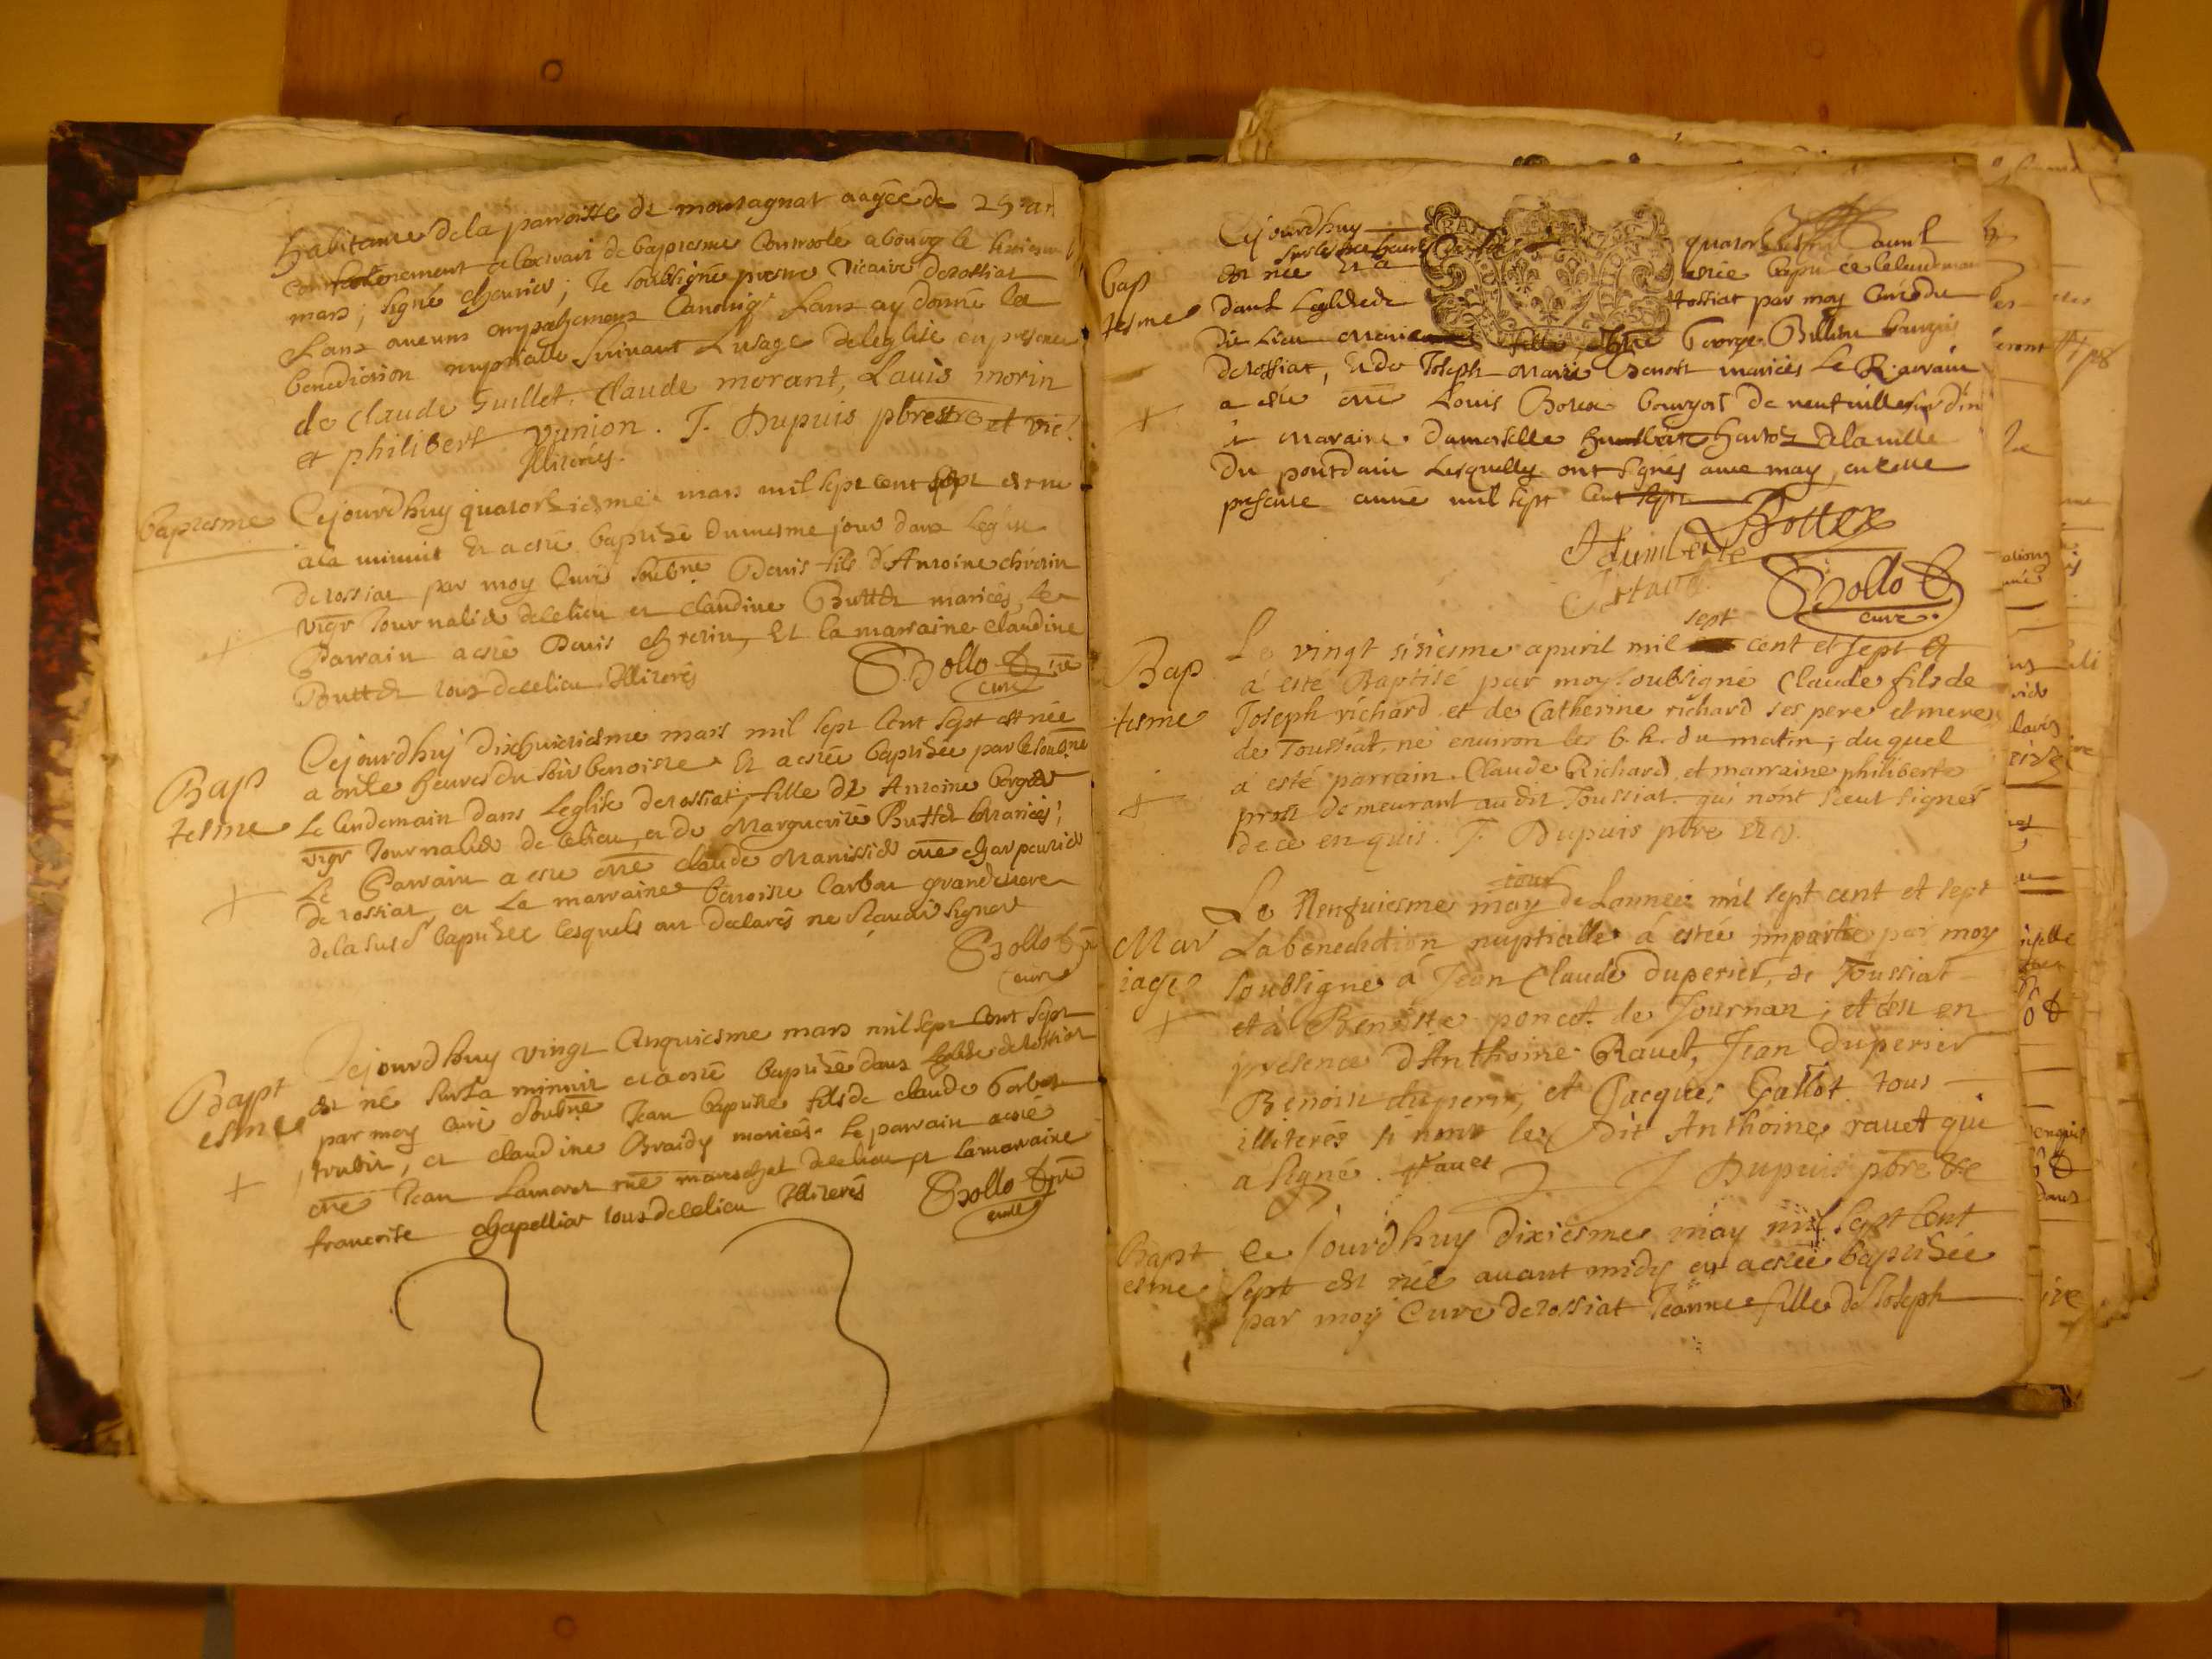 habitante de la parroisse de montagnat aagée de 25 an
conformement a lextrait de baptesme Controolé a bourg le
mars, signé ; Je soubsigné prestre Vicaire de tossiat
sans aucuns empeschemens Canoniq. Leur ay donné la
benediction nuptialle suivant Lusage de leglise en presence
de Claude Guillet, Claude morant, Louis morin
et philibert vunion. J. Dupuis pbrestre et vic.
Illiterés.
baptesme
Cejourdhuy quatorziesme mars mil sept cent sept est né
a la minuit Et a esté baptisé du mesme jour dans Leglise
de tossiat par moy Curé soubné Denis fils d'Antoine chvrin
vigr Journalier de ce lieu et claudine Buttet mariées, Le
Parrain a esté Denis et la marraine claudine
Buttet tous de ce lieu Illiterés
curé
Baptesme
Cejourdhuy dixhuictiesme mars mil sept Cent sept est née
a onze heures du soir benoiste Et a estée baptisée par le soubné
Le Lendemain dans Leglise de tossiat, fille de Antoine
vigr Journalier de ce lieu et de Marguerite Buttet Mariées,
Le Parrain a esté me claude Manissier me charpentier
de tossiat, et La marraine benoiste Carbon grandmere
de la susd baptisée lesquels ont declarés ne sçavoir signer
curé
Baptesme
Cejourdhuy vingt Cinquiesme mars mil sept Cent sept
est né sur la minuit et a esté baptisé dans Leglise de tossiat
par moy Curé soubné Jean baptiste fils de claude
, et claudine Braidy mariées. Le parrain a esté
me Jean Lamoret me mareschal de ce lieu et La marraine
francoise chapelliar tous de ce lieu Illiterés
curé
Baptesme
Cejourdhuy quatorziesme avril
sur les heures
est née Et a estée baptisée le lendemain
dans Leglise de tossiat par moy Curé du
dit Lieu Marie fille George Billion bourgois
de tossiat, et de Joseph Marie Benoit mariées Le Parrain
a esté me Louis Botex bourgois de neufville sur d'in
et Maraine damoiselle de la ville
du pontdain Lesquelly ont signés avec moy, en celle
presente année mil sept Cent sept
Humberte
Bottex
curé
Baptesme
Le vingt sisiesme apuril mil sept cent et sept
á esté Baptisé par moy soubsigné Claude fils de
Joseph richard et de Catherine richard ses pere et mere
de Toussiat, né environ les 6. h. du matin; duquel
á esté parrain Claude Richard et marraine philiberte
demeurant audit Toussiat qui n'ont sceut signer
de ce enquis. J. Dupuis pbre et v.
Mariage
Le Neufuiesme jour may de Lannee mil sept cent et sept
La benediction nuptialle á estée impartie par moy
soubsigné á Jean Claude duperier, de Toussiat
et á Benoiste poncet de Journan; et ceu en
presence d'Anthoine Rauet, Jean duperier
Benoist duperier, et Jacques Gallot tous
illiterés si non les dit Anthoine rauet qui
a signé. Rauet J Dupuis pbre et v
Baptesme
Ce Jourdhuy dixiesme may mil sept Cent
sept est née avant midy et a estée baptisée
par moy Curé de tossiat Jeanne fille de Joseph